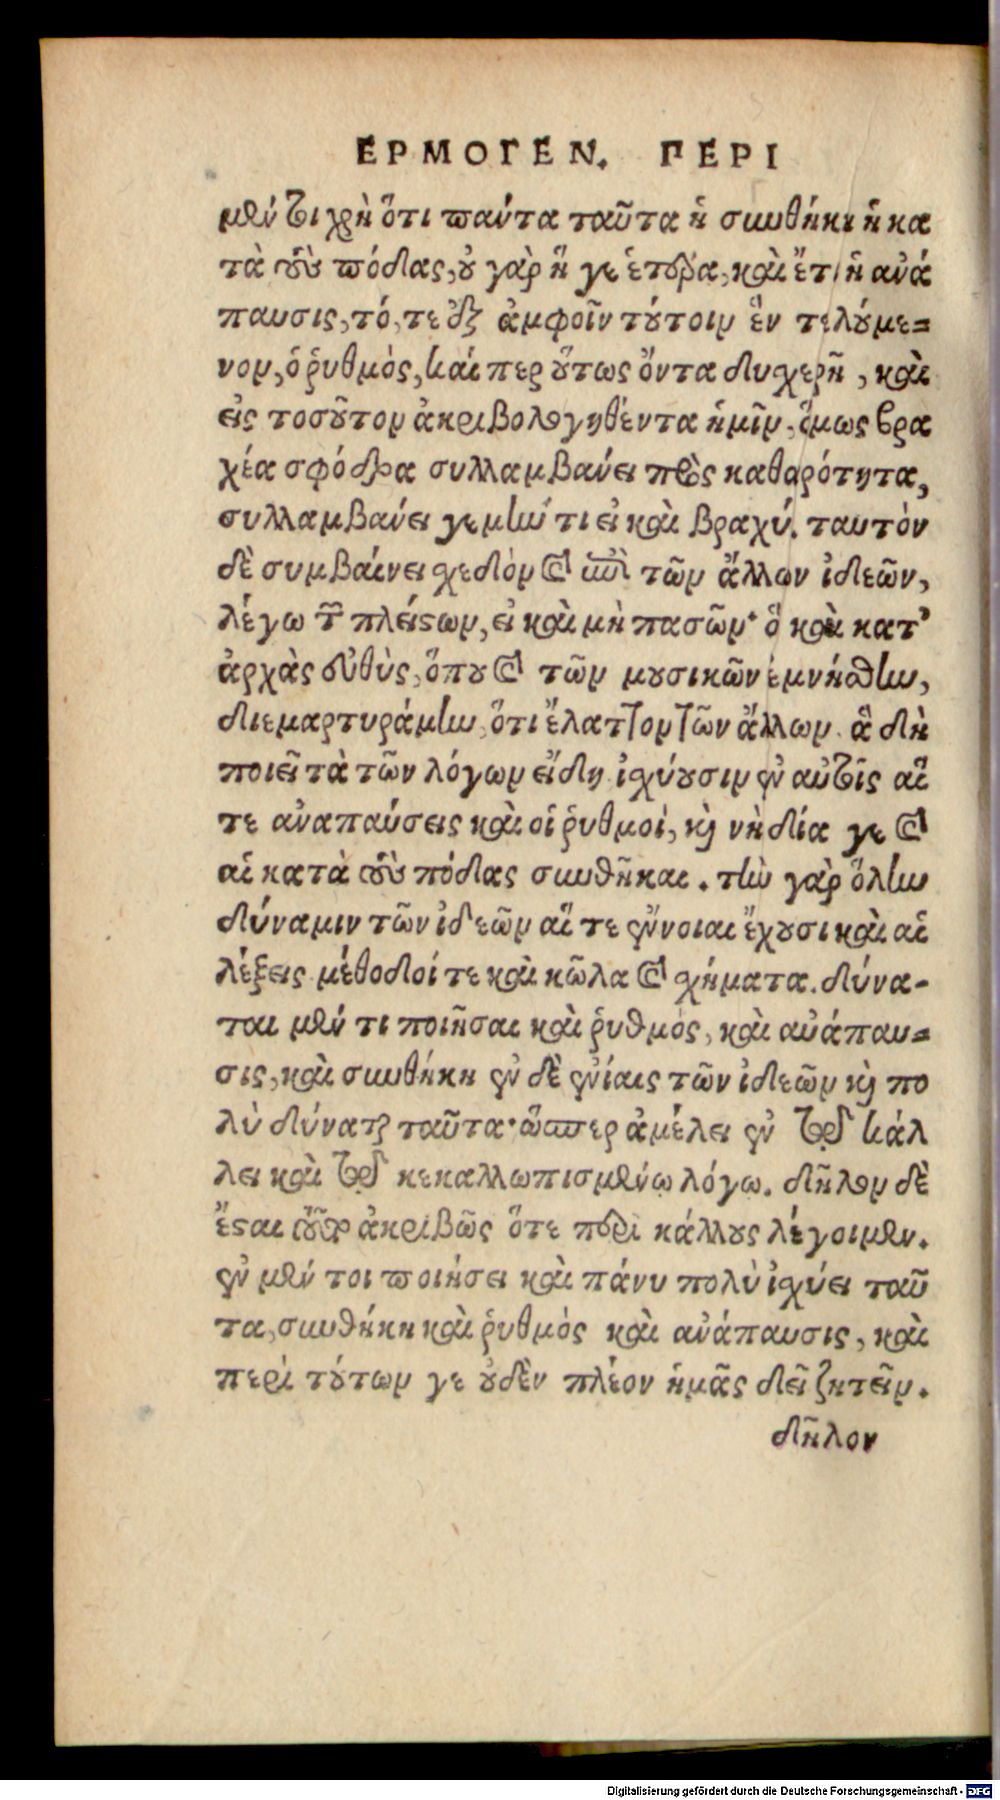 ΕΡΜΟΓΕΝ. ΠΕΡΙ
μέντοι χρὴ ὅτι πάντα ταῦτα ἡ συνθήκη ἡ κα
τὰ τοὺς πόδας, οὐ γὰρ ἥ γε ἑτέρα, καὶ ἔτι ἡ ἀνά
παυσις, τό, τε ἐξ ἀμφοῖν τούτοιν ἓν τελούμε=
νον, ὁ ῥυθμὸς, καί περ οὕτως ὄντα δυχερῆ, καὶ
εἰς τοσοῦτον ἀκριβολογηθέντα ἡμῖν, ὅμως βρα
χέα σφόδρα συλλαμβάνει πρὸς καθαρότητα,
συλλαμβάνει γε μήν τι εἰ καὶ βραχύ. ταυτὸν
δὲ συμβαίνει σχεδὸν καὶ ἐπὶ τῶν ἄλλων ἰδεῶν,
λέγω τῶν πλείστων, εἰ καὶ μὴ πασῶν· ὃ καὶ κατ'
ἀρχὰς εὐθὺς, ὅπου καὶ τῶν μουσικῶν ἐμνήσθην,
διεμαρτυράμην, ὅτι ἔλαττον τῶν ἄλλων ἃ δὴ
ποιεῖ τὰ τῶν λόγων εἴδη ἰσχύουσιν ἐν αὐτοῖς αἵ
τε ἀναπαύσεις καὶ οἱ ῥυθμοὶ, καὶ νὴ δία γε καὶ
αἱ κατὰ τοὺς πόδας συνθῆκαι. τὴν γὰρ ὅλην
δύναμιν τῶν ἰδεῶν αἵ τε ἔννοιαι ἔχουσι καὶ αἱ
λέξεις μέθοδοί τε καὶ κῶλα καὶ σχήματα. δύνα-
ται μέν τι ποιῆσαι καὶ ῥυθμός, καὶ ἀνάπαυ=
σις, καὶ συνθήκη ἐν δὲ ἐνίαις τῶν ἰδεῶν καὶ πο
λὺ δύναται ταῦτα· ὥσπερ ἀμέλει ἐν τῷ κάλ
λει καὶ τῷ κεκαλλωπισμένῳ λόγῳ. δῆλον δὲ
ἔσται τοῦτο ἀκριβῶς ὅτε περὶ κάλλους λέγοιμεν.
ἐν μέν τοι ποιήσει καὶ πάνυ πολὺ ἰσχύει ταῦ
τα, συνθήκη καὶ ῥυθμὸς καὶ ἀνάπαυσις, καὶ
περὶ τούτων γε οὐδὲν πλέον ἡμᾶς δεῖ ζητεῖν.
δῆλον
Digitalisierung gefördert durch die Deutsche Forschungsgemeinschaft - DFG